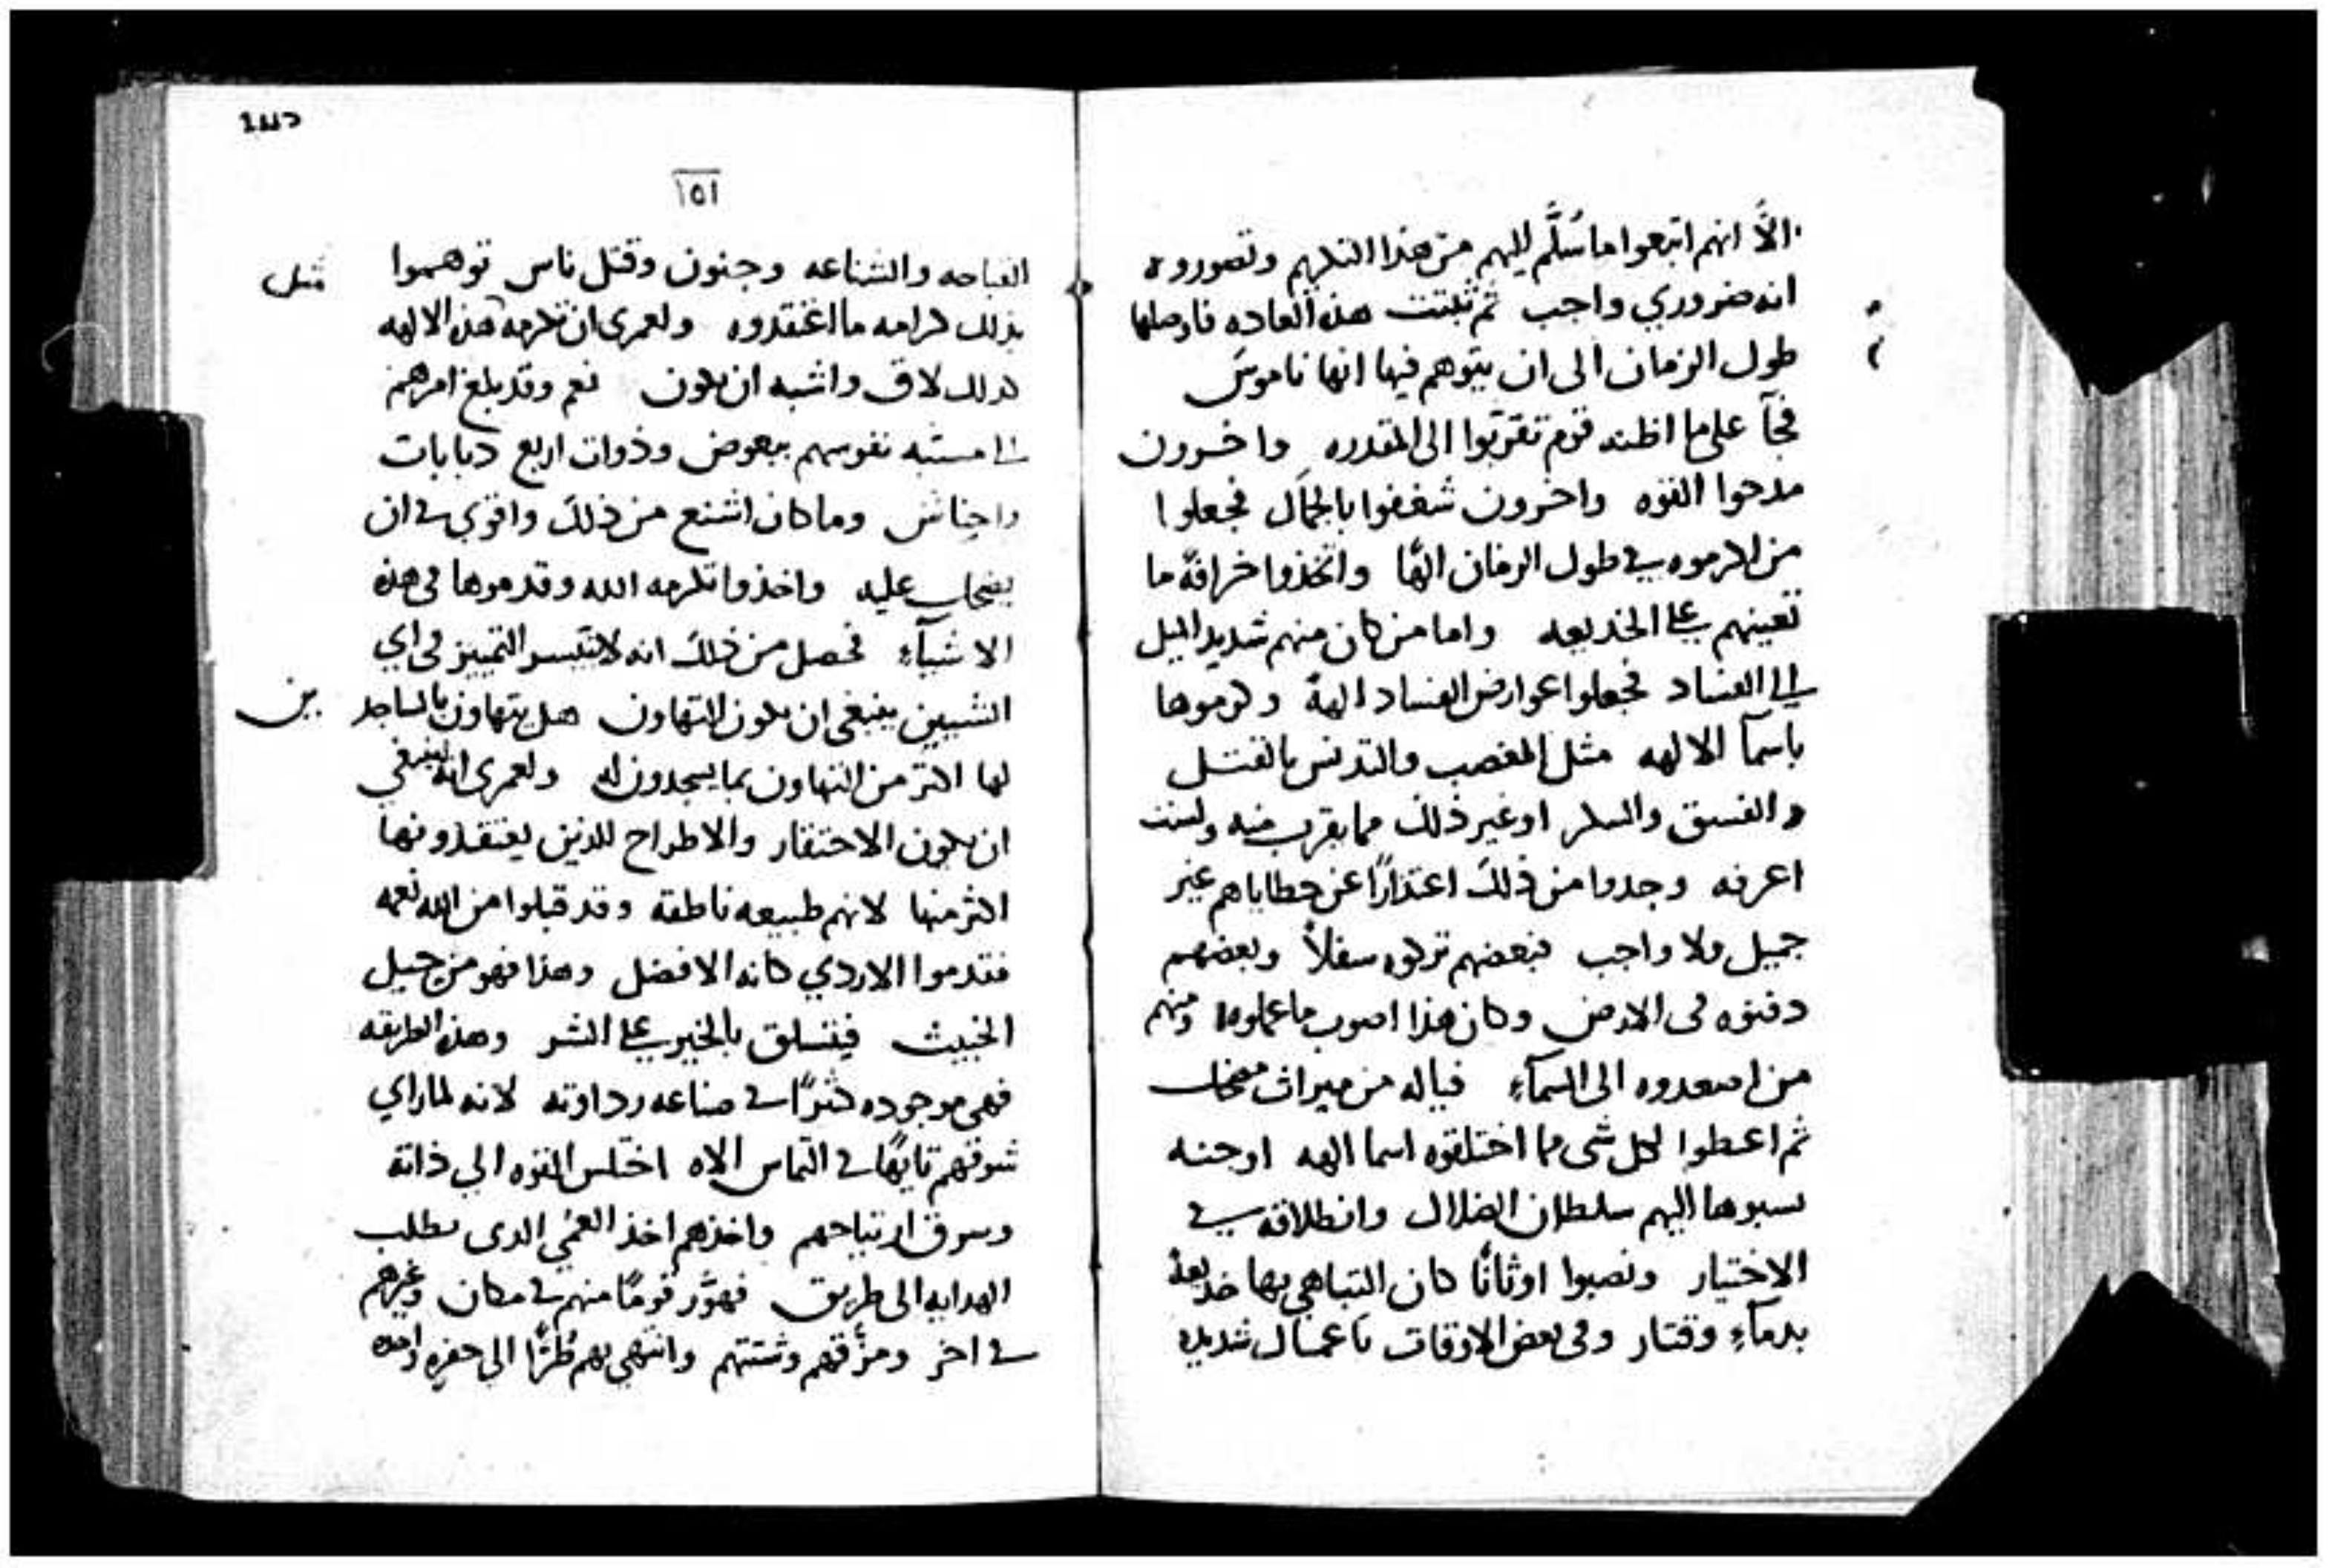 الَّا انهم اتبعوا ما سُلَّم اليهم من هذا التكريم وتصوروه
انه ضروري واجب ثم ثبتت هذه العاده فاوصلها
طول الزمان الى ان يتوهم فيها انها ناموس
فجآ على ما اظنه قوم تقربّوا الى المقدره واخرون
مدحوا القوه واخرون شغفوا بالجمال فجعلوا
من اكرموه في طول الزمان الهًا واتخذوا خرافةً ما
تعينهم على الخديعه واما من كان منهم شديد الميل
الى الفساد فجعلوا عوارض الفساد الهةً وكرموها
باسمآ الالهه مثل الغضب والتدنس بالقتل
والفسق والسكر او غير ذلك مما يقرب منه ولست
اعرفه وجدوا من ذلك اعتذارًا عن خطاياهم غير
جميل ولا واجب فبعضهم تركوه سفلاً وبعضهم
دفنوه في الارض وكان هذا اصوب ما عملوه ومنهم
من اصعدوه الى السمآء فياله من ميراث مضحك
ثم اعطوا لكل شى مما اختلقوه اسما الهه او جنه
نسبوها اليهم سلطان الضلال وانطلاقه في
الاختيار ونصبوا اوثانًا كان التباهي بها خديعةً
بدمآءِ وقتار وفى بعض الاوقات باعمال شديده
١٥١
القباحه والشناعه وجنون وقتل ناس توهموا مثل
بذلك كرامه ما اعتقدوه ولعمرى ان تكرمه هذه الالهه
كذلك لاق واشبه ان يكون نعم وقد بلغ امرهم
الى نفوسهم ببعوض وذوات اربع دبابات
واحناش وما كان اشنع من ذلك واقوى في ان
يضحك عليه واخذوا تكرمه الله وقدموها فى هذه
الاشيآءِ فحصل من ذلك انه لا يتيسر التمييز في اي
الشيين ينبغى ان يكون التهاون هل يتهاون بالساجدين
لها اكثر من التهاون بما يسجدون له ولعمرى انه ينبغي
ان يكون الاحتقار والاطراح للذين يعتقدونها
اكثر منها لانهم طبيعه ناطقه وقد قبلوا من الله نعمه
فقدموا الاردي كانه الافضل وهذا فهو من حيل
الخبيث فيتسلق بالخير على الشر وهذه الطريقه
فهى موجوده كثيرًا في صناعه رداوته لانه لما راي
شوقهم تايهًا في التماس الاه اختلس القوه الي ذاته
وسرق ارتياحهم واخذهم اخذ العمى الدى يطلب
الهدايه الى طريق فهوَّر قومًا منهم في مكان وغيرهم
في اخر ومزَّقهم وشتتهم وانتهى بهم طُرًّا الى حفره واحده